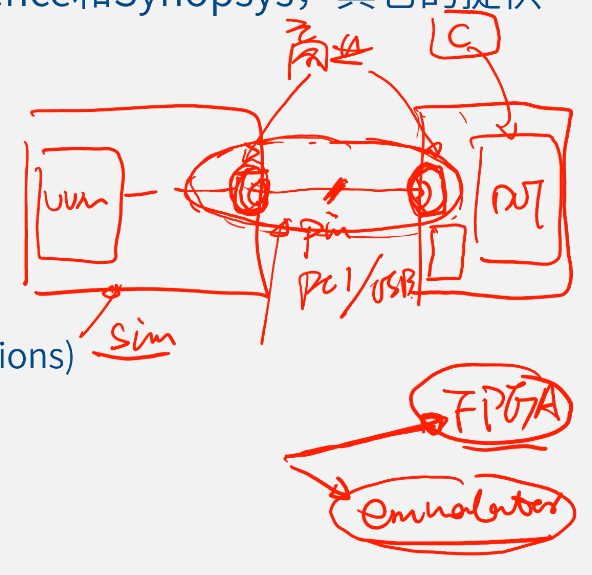 ence和Synopsys，其它的提供
C
uvm
DUT
pin
PCI/USB
Sim
ions)
FPGA
emulator